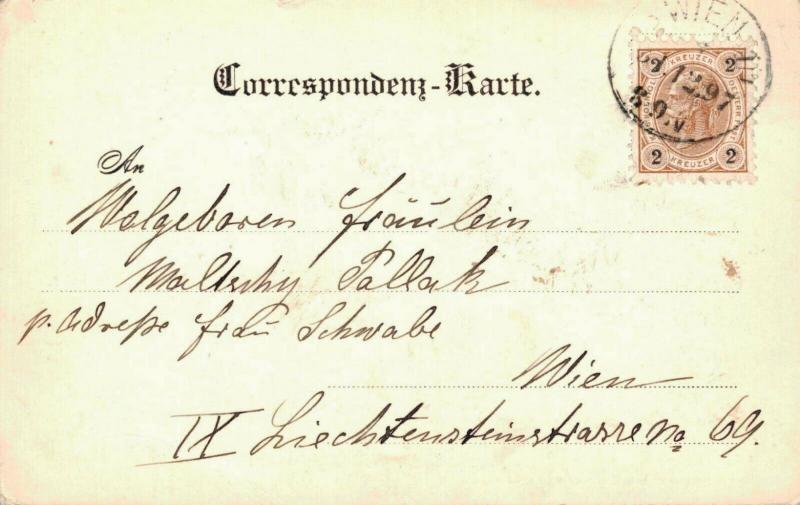 WIEN
2 KREUZER 2
12.97
8.0.V
2 KREUZER 2
Correspondenz-Karte.
An
Wolgeboren Fräulein
Maltschy Pollak
p. Adreße Frau Schwabe
Wien
IX Liechtensteinstrasse No 69.